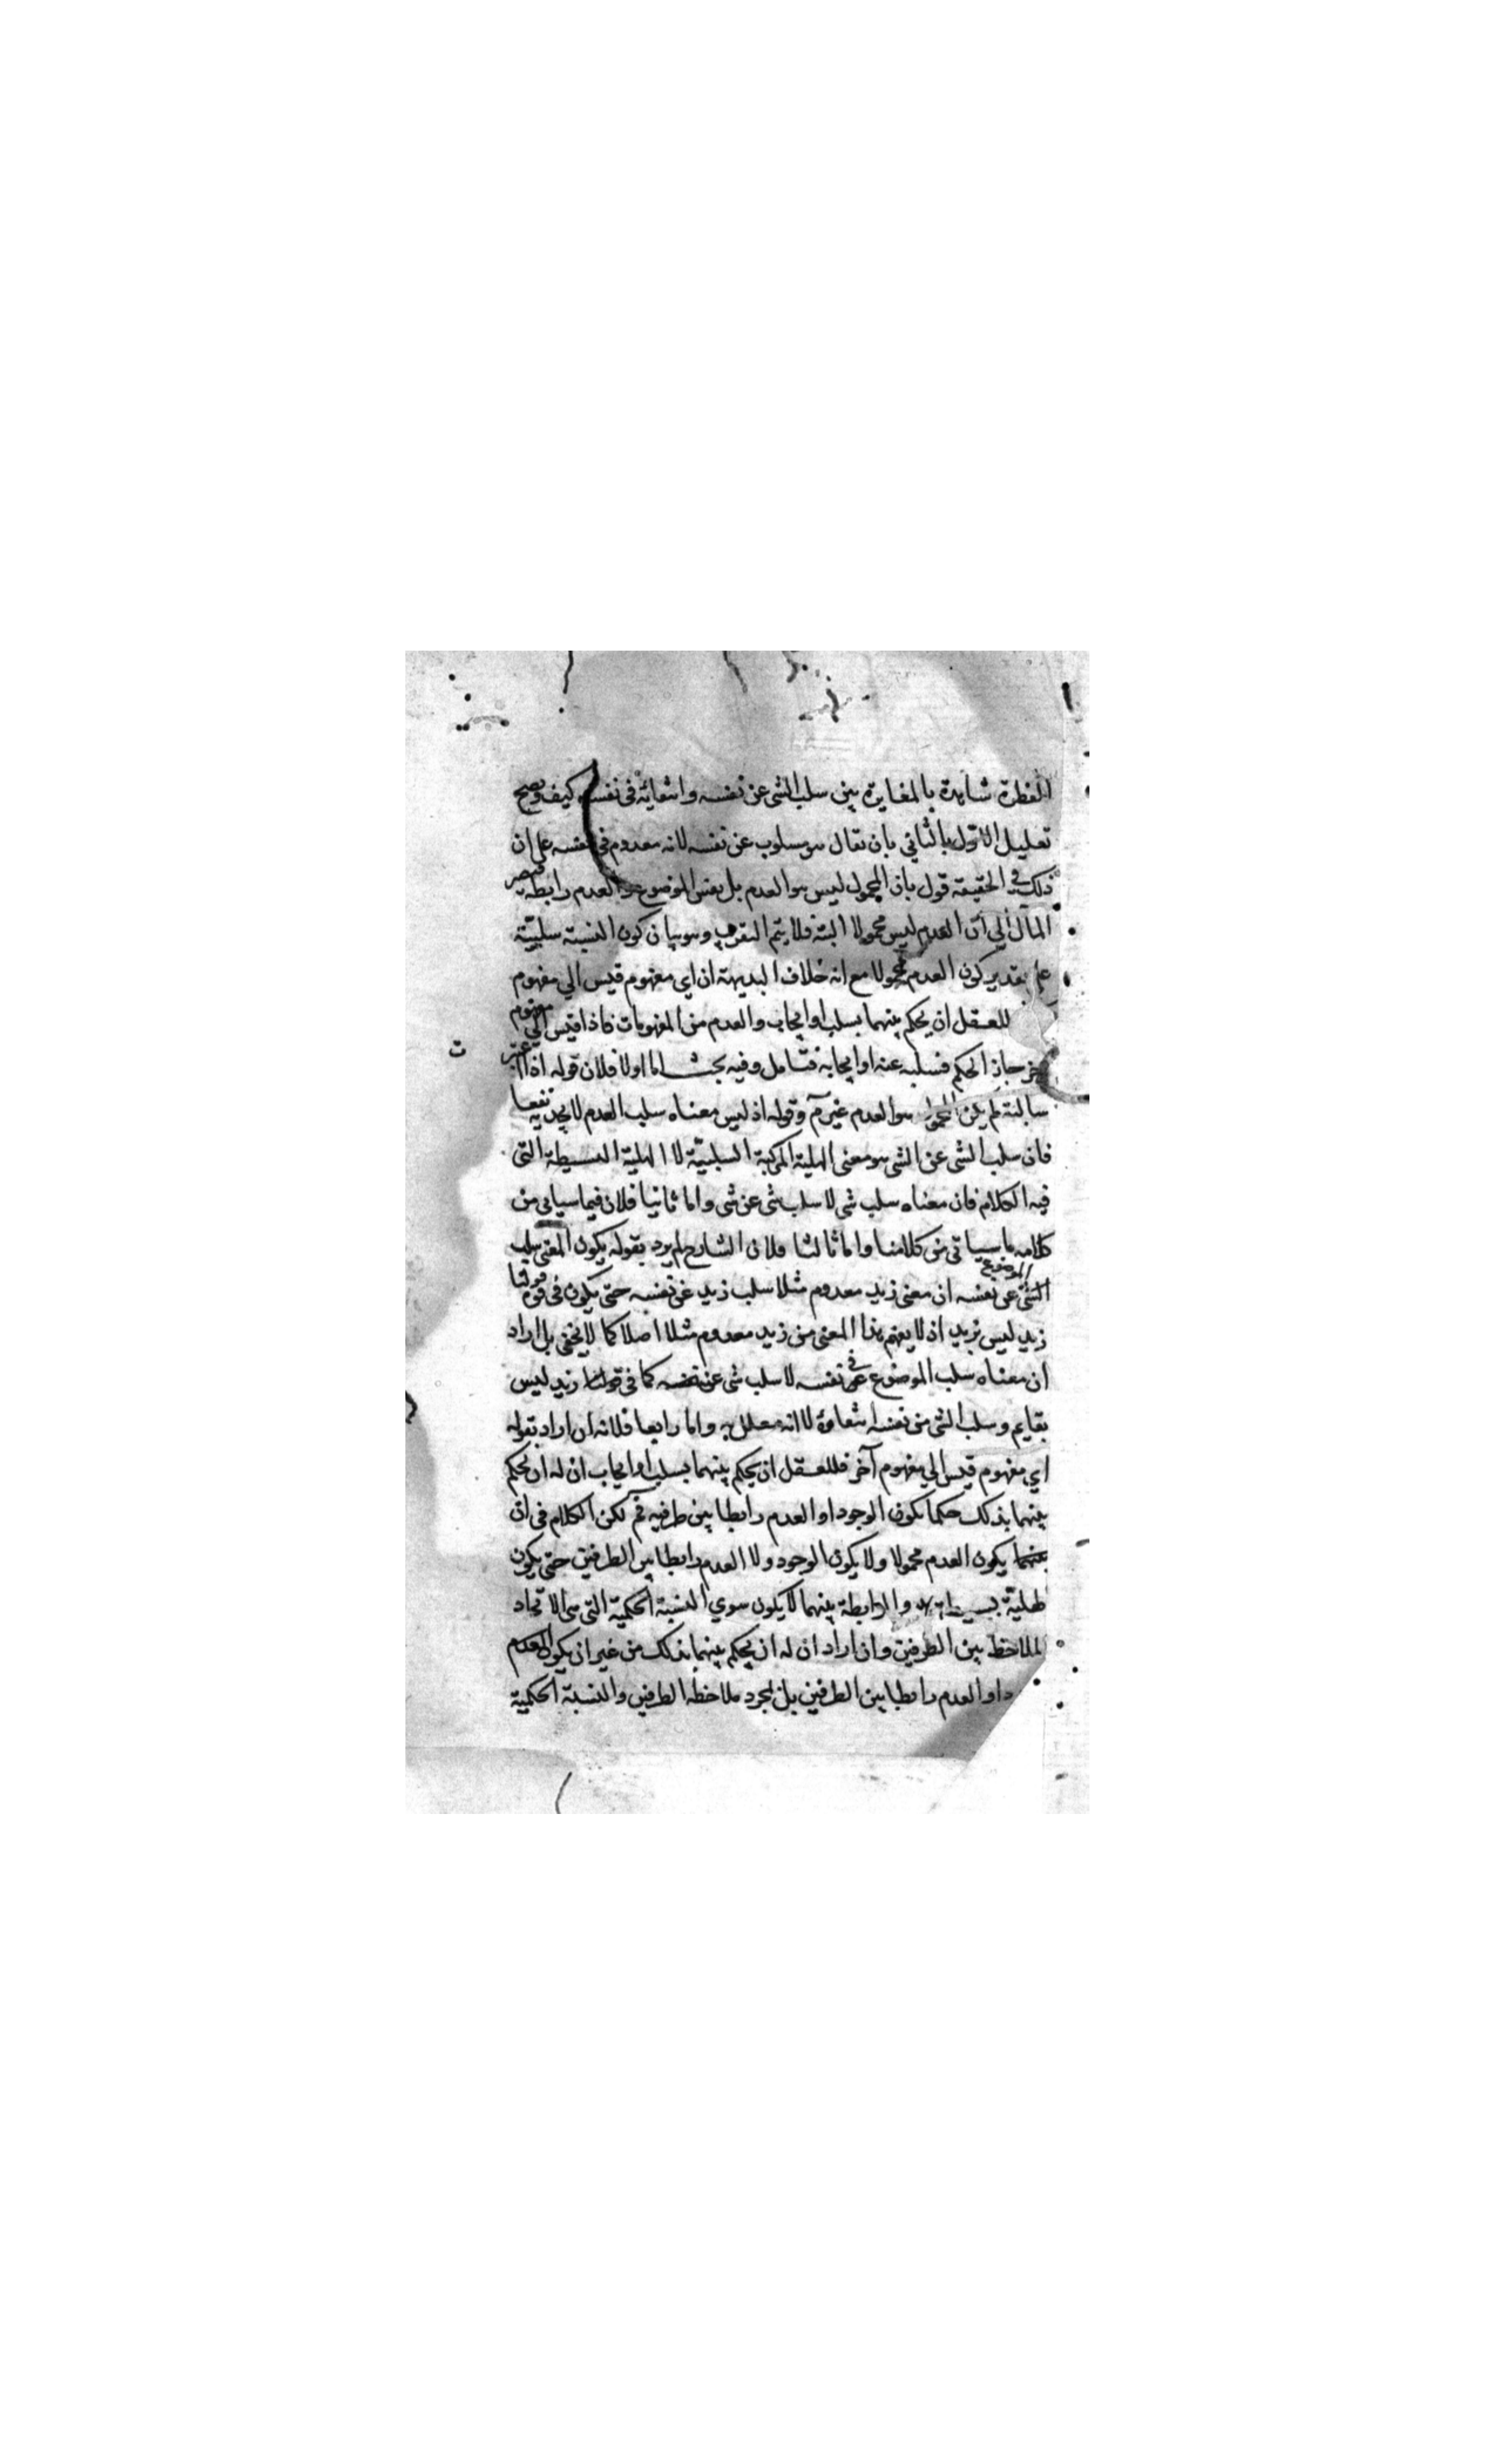 الفطرة شاهدة بالمغايرة بين سلب الشى عن نفسه وانتفائه فى نفسه كيف ويصح
تعليل الاول بالثاني بان يقال هو مسلوب عن نفسه لانه معدوم فى نفسه على ان
ذلك في الحقيقة قول بان المحمول ليس هو العدم بل نفس الموضوع والعدم رابطة فيصير
المآل الي ان العدم ليس محمولا البتة فلا يتم التقريب وهو بيان كون النسبة سلبيّة
على تقدير كون العدم محمولا مع انه خلاف البديهة ان اي مفهوم قيس الي مفهوم
للعقل ان يحكم بينهما بسلب او ايجاب والعدم من المفهومات فاذا قيس الي مفهوم
آخر جاز الحكم فسلبه عنه او ايجابه فتامل وفيه بحث اما اولا فلان قوله اذا اعتبر
سالبة لم يكن المحمول هو العدم غير مم وقوله اذ ليس معناه سلب العدم لا يجديه نفعا
فان سلب الشى عن الشى هو معنى الهلية المركبة السلبيّة لا الهلية البسيطة التى
فيه الكلام فان معناه سلب شى لا سلب شى عن شى واما ثانيا فلان فيما سياتي من
كلامه ما سياتى من كلامنا واما ثالثا فلان الشارح لم يرد بقوله يكون المعنى سلب
الشى عن نفسه ان معنى زيد معدوم مثلا سلب زيد عن نفسه حتى يكون فى قوة قولنا
الموضوع
زيد ليس بزيد اذ لا يفهم هذا المعنى من زيد معدوم مثلا اصلا كما لا يخفى بل اراد
ان معناه سلب الموضوع فى نفسه لا سلب شى عن نفسه كما فى قولنا زيد ليس
بقايم وسلب الشى من نفسه انتفاؤه لا انه معلل به واما رابعا فلانه ان اراد بقوله
اي مفهوم قيس الي مفهوم آخر فللعقل ان يحكم بينهما بسلب او ايجاب ان له ان يحكم
بينهما بذلك حكما يكون الوجود او العدم رابطا بين طرفيه فمم لكن الكلام فى ان
يكون العدم محمولا ولا يكون الوجود ولا العدم رابطا بين الطرفين حتى يكون
هلية بسيطة والرابطة بينهما لا يكون سوي النسبة الحكمية التى هى الاتحاد
الملاحظ بين الطرفين وان اراد ان له ان يحكم بينهما بذلك من غير ان يكون العدم
او العدم رابطا بين الطرفين بل بمجرد ملاحظة الطرفين والنسبة الحكمية